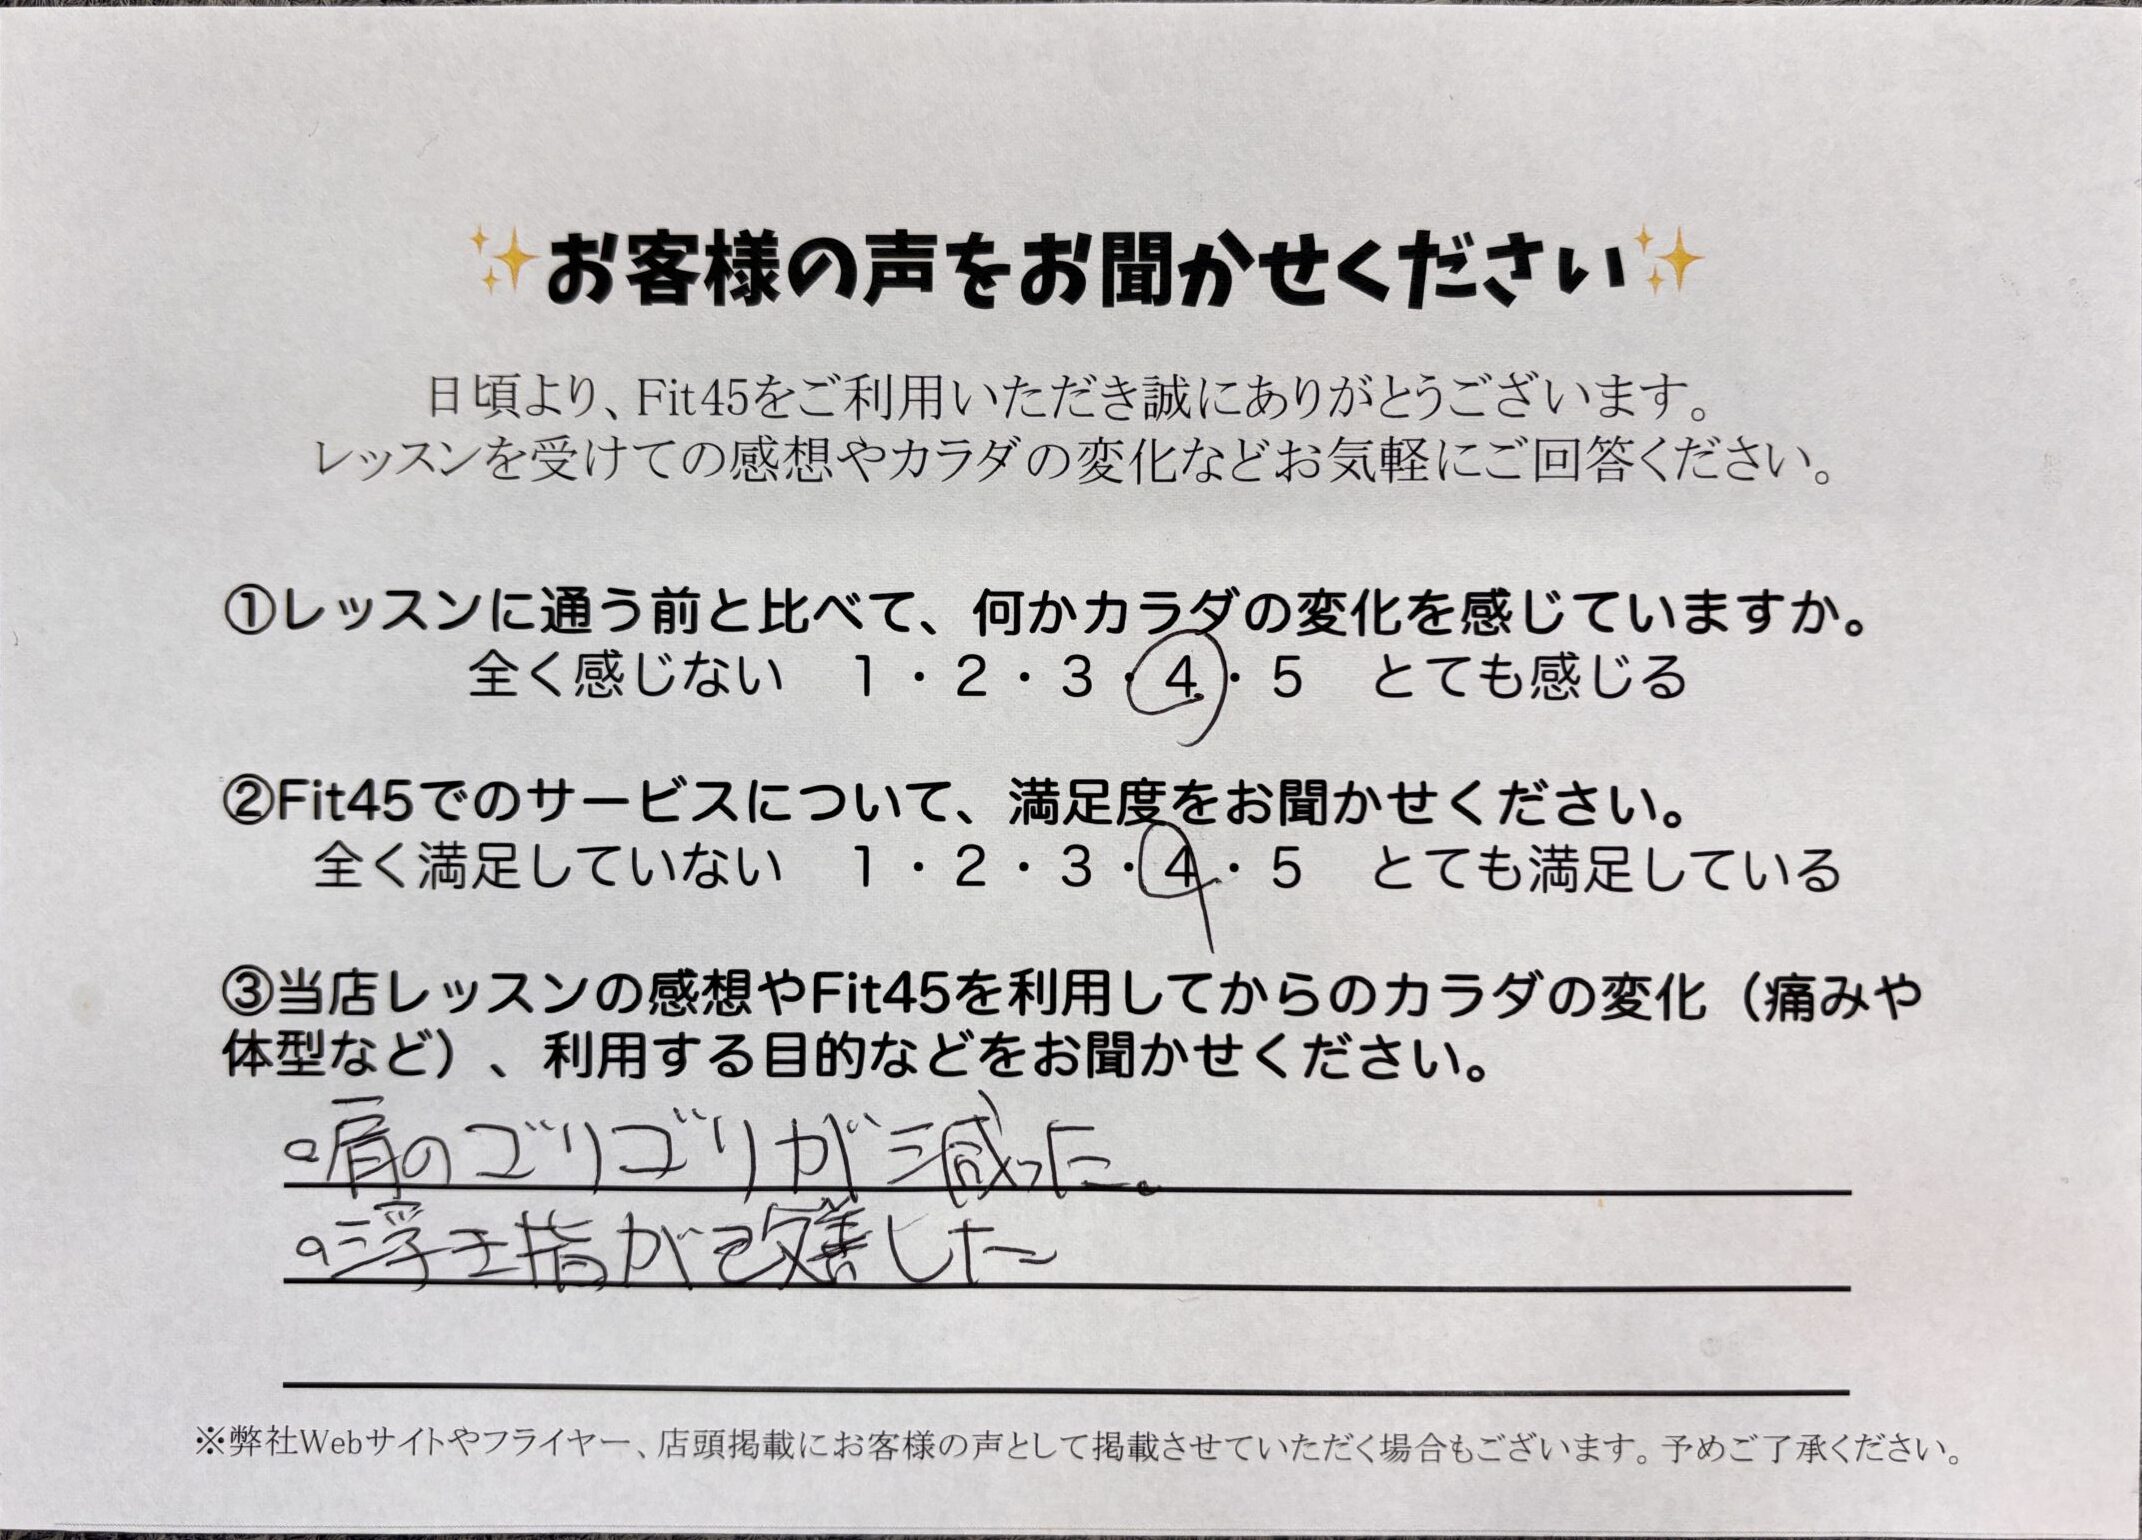 ✨お客様の声をお聞かせください✨
日頃より、Fit45をご利用いただき誠にありがとうございます。
レッスンを受けての感想やカラダの変化などお気軽にご回答ください。
①レッスンに通う前と比べて、何かカラダの変化を感じていますか。
全く感じない 1・2・3・4・5 とても感じる
②Fit45でのサービスについて、満足度をお聞かせください。
全く満足していない 1・2・3・4・5 とても満足している
③当店レッスンの感想やFit45を利用してからのカラダの変化（痛みや
体型など）、利用する目的などをお聞かせください。
。肩のゴリゴリが減った。
。浮き指が改善した
※弊社Webサイトやフライヤー、店頭掲載にお客様の声として掲載させていただく場合もございます。予めご了承ください。